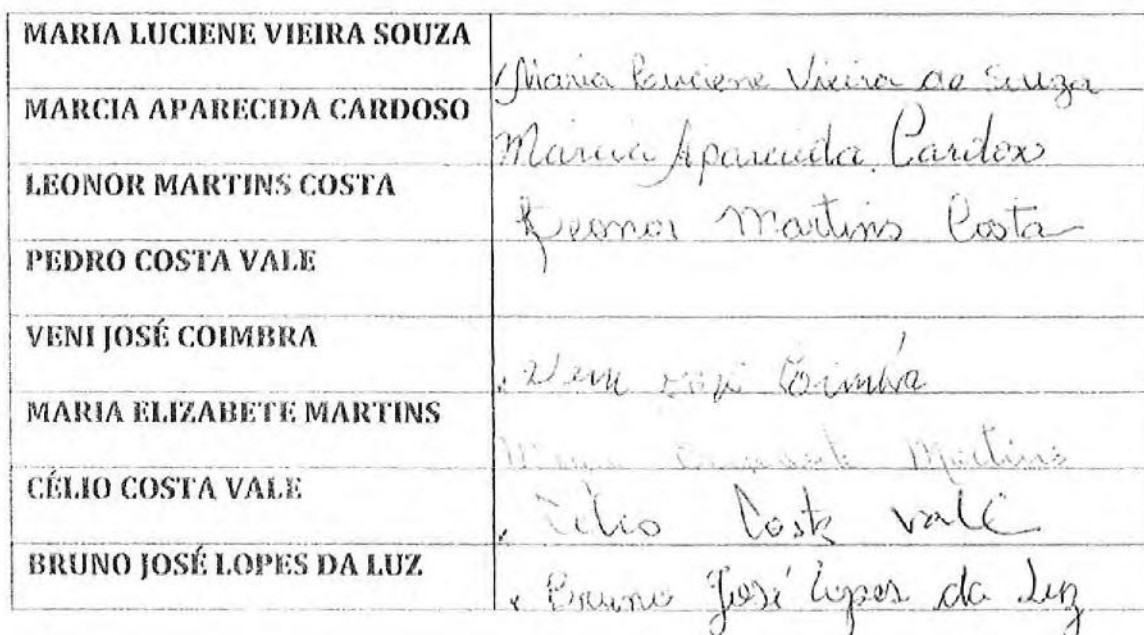 MARIA LUCIENE VIEIRA SOUZA
Maria Luciene Vieira de Souza
MARCIA APARECIDA CARDOSO
Marcia Aparecida Cardoso
LEONOR MARTINS COSTA
Leonor Martins Costa
PEDRO COSTA VALE
VENI JOSÉ COIMBRA
Veni José Coimbra
MARIA ELIZABETE MARTINS
Maria Martins
CÉLIO COSTA VALE
Célio Costa Vale
BRUNO JOSÉ LOPES DA LUZ
Bruno José Lopes da Luz